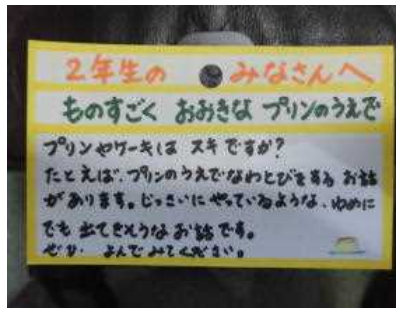 2年生の みなさんへ
ものすごく おおきな プリンのうえで
プリンやケーキは スキですか?
たとえば、プリンのうえでなわとびをする お話
があります。じっさいに やっているような、ゆめに
でも 出てきそうな お話です。
ぜひ よんでみてください。